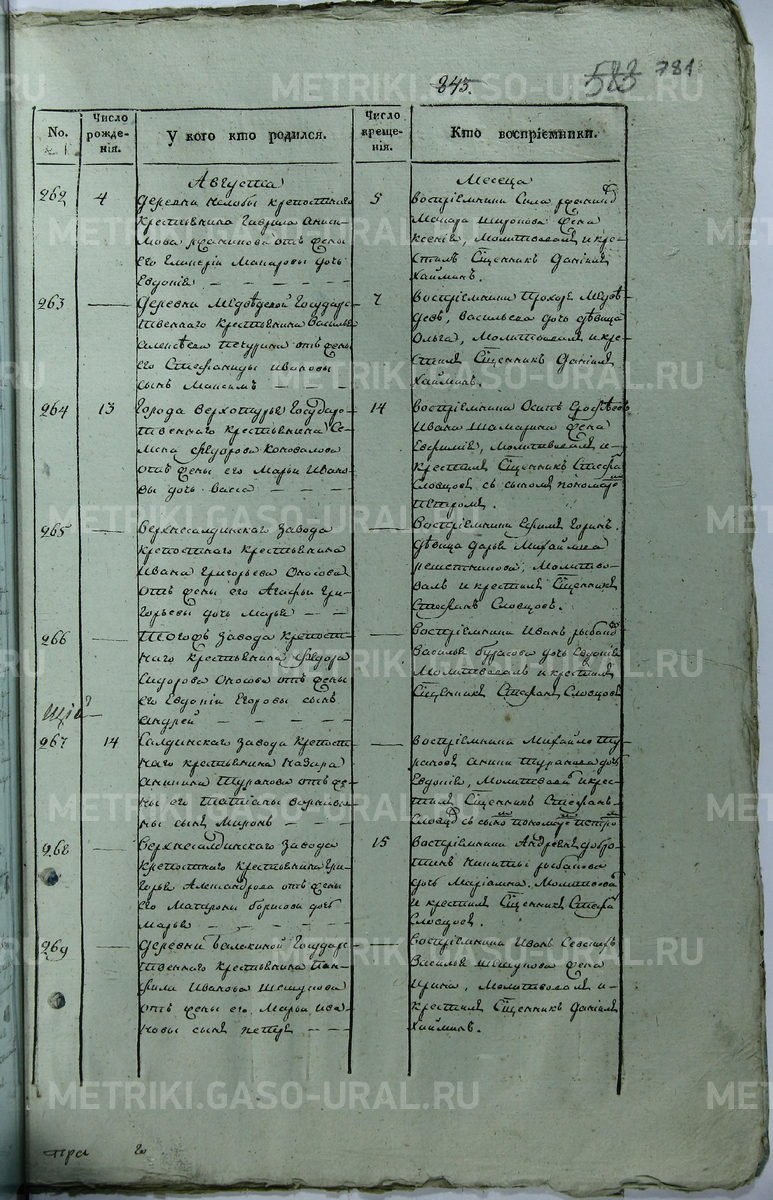 845.
781
No.
Число рожде-нія.
У кого кто родился.
Число креще-нія.
Кто воспріемники.
Августа
Месеца
262
4
деревни крепостнаго
крестьянина Гаврила Аниси-
мова отъ жены
его Макаровы дочь
Евдокія
5
воспріемники Сила
Макара Миронова жена
Ксенія, Молитвовалъ и кре-
стилъ Сщенникъ Даніилъ
Хайминъ.
263
Деревни Медведской Государс-
твеннаго крестьянина Василья
Алексеева Печурина отъ жены
его Стефаниды Ивановы
сынъ Максимъ
7
воспріемники Прохоръ Медве-
девъ, Васильева дочь девица
Ольга, Молитвовалъ и кре-
стилъ Сщенникъ Даніилъ
Хайминъ.
264
13
Города Верхотурья Государс-
твеннаго крестьянина Се-
мена Федорова Коновалова
отъ жены его Марьи Ивано-
вы дочь Васса
14
воспріемники Осипъ Ерофеевъ
Ивана Шамарина жена
Евфимія, Молитвовалъ и
крестилъ Сщенникъ Стефа
Словцовъ съ сыномъ пономаре
Петромъ.
265
Верхнесалдинскаго завода
крепостнаго крестьянина
Ивана Григорьева Оносова
отъ жены его Агафьи Гри-
горьевы дочь Марья
Воспріемники Ефимъ Зоринъ.
девица Дарья Михайлова
Молитво-
валъ и крестилъ Сщенникъ
Стефанъ Словцовъ.
266
Тогожъ завода крепост-
наго крестьянина Федора
Сидорова Оносова отъ жены
его Евдокіи Егоровы сынъ
Андрей
воспріемники Иванъ
Василья дочь Евдокія
Молитвовалъ и крестилъ
Сщенникъ Стефанъ Словцовъ
267
14
Салдинскаго завода крепост-
наго крестьянина Назара
Аникина Туранова отъ же-
ны его Татіаны
ны сынъ Миронъ
воспріемники Михайло Ту-
рановъ Аники Туранова дочь
Евдокія, Молитвовалъ и крес-
тилъ Сщенникъ Стефанъ
Словцо съ сыно пономаре петро
268
Верхнесалдинскаго завода
крепостнаго крестьянина Гри-
горья Александрова отъ жены
его Матроны Борисовы дочь
Марья
15
воспріемники Андреянъ
Никиты
дочь Маріамна. Молитвова
и крестилъ Сщенникъ Стефа
Словцовъ.
269
деревни Белокиной Государс-
твеннаго крестьянина Пан-
фила Иванова Шешукова
отъ жены его Марьи Ива-
новы сынъ петръ
воспріемники Иванъ
Василья Шешукова жена
Ирина, Молитвовалъ и
крестилъ Сщенникъ Даніилъ
Хайминъ.
METRIKI.GASO-URAL.RU